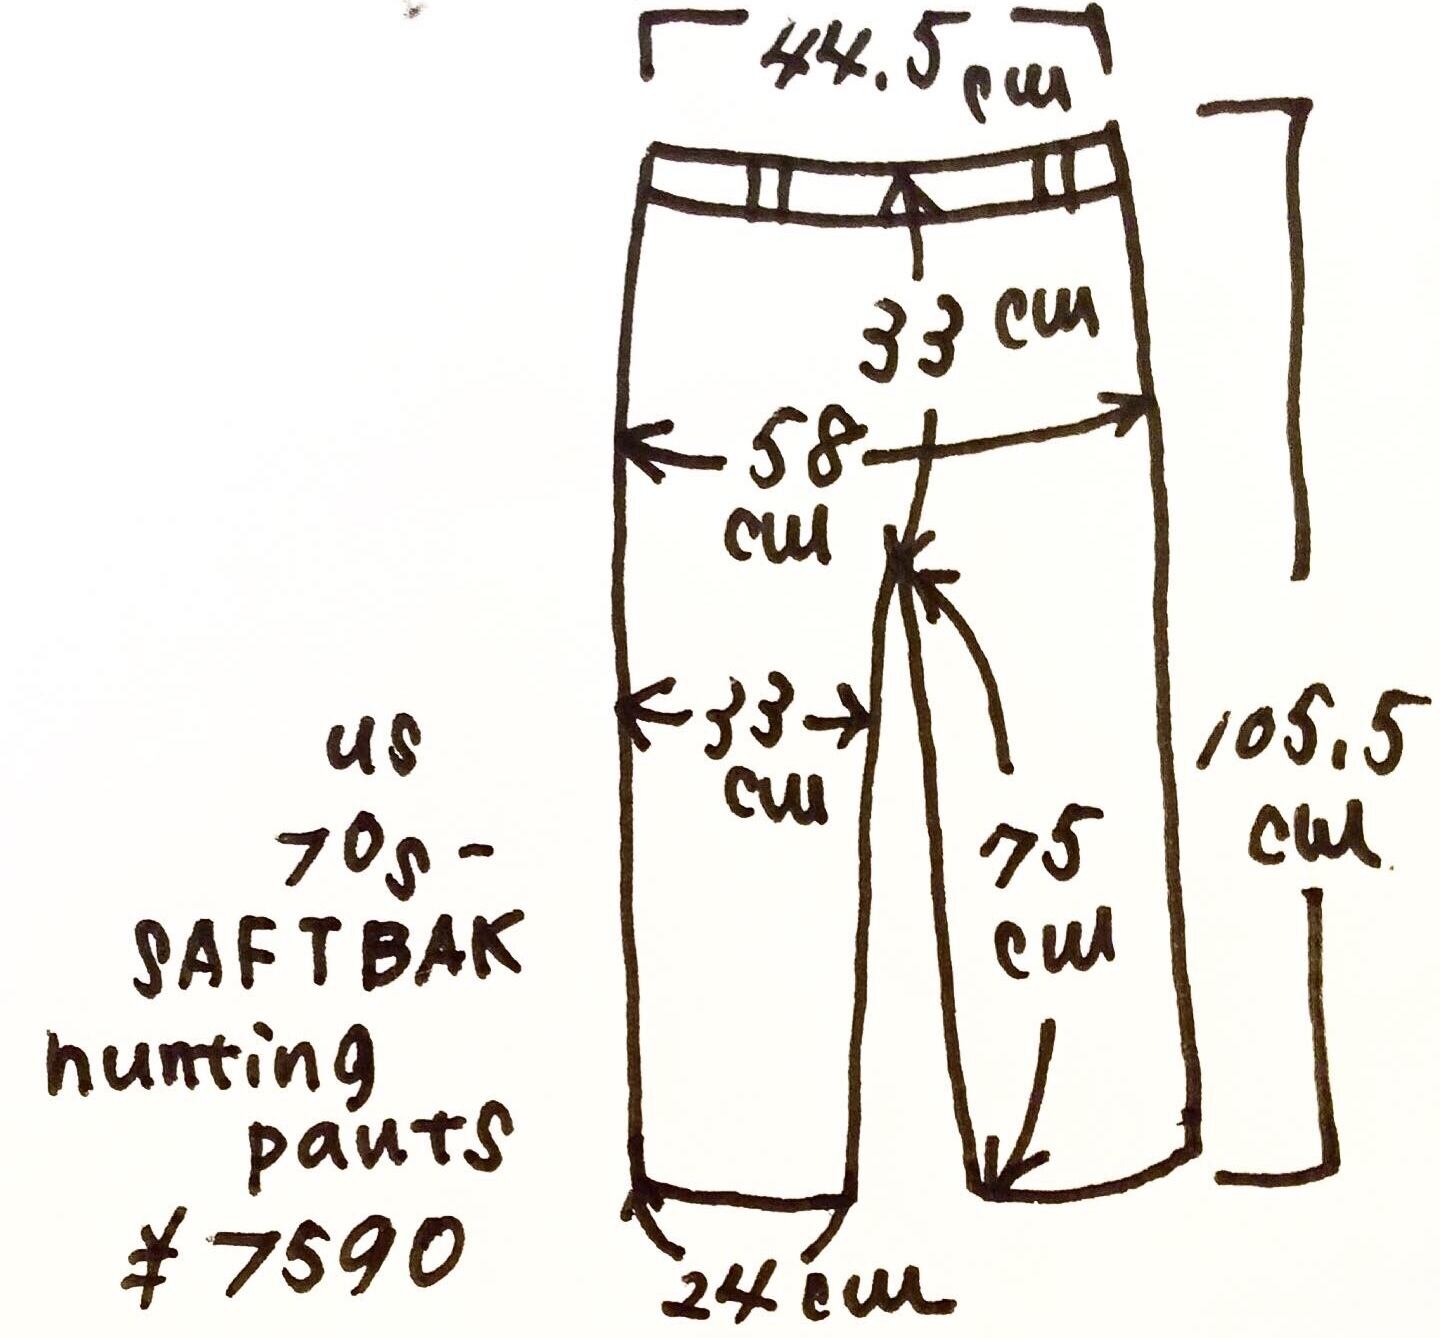 44.5 cm
33 cm
58
cm
33
cm
75
cm
105.5
cm
24 cm
us
70s-
SAFTBAK
hunting
pants
¥7590